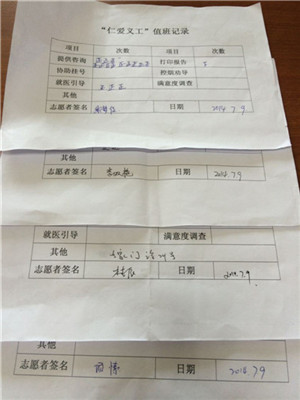 “仁爱义工”值班记录
项目 次数 项目 次数
提供咨询 正正正正 打印报告 5
协助挂号 控烟劝导
就医引导 正正正 满意度调查
其他
志愿者签名 日期 2014.7.9
其他
志愿者签名 日期 2014.7.9
就医引导 满意度调查
其他
志愿者签名 日期 2014.7.9
其他
志愿者签名 日期 2014.7.9